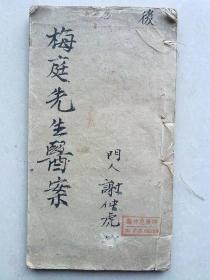 後
梅庭先生醫案
門人謝佐虎